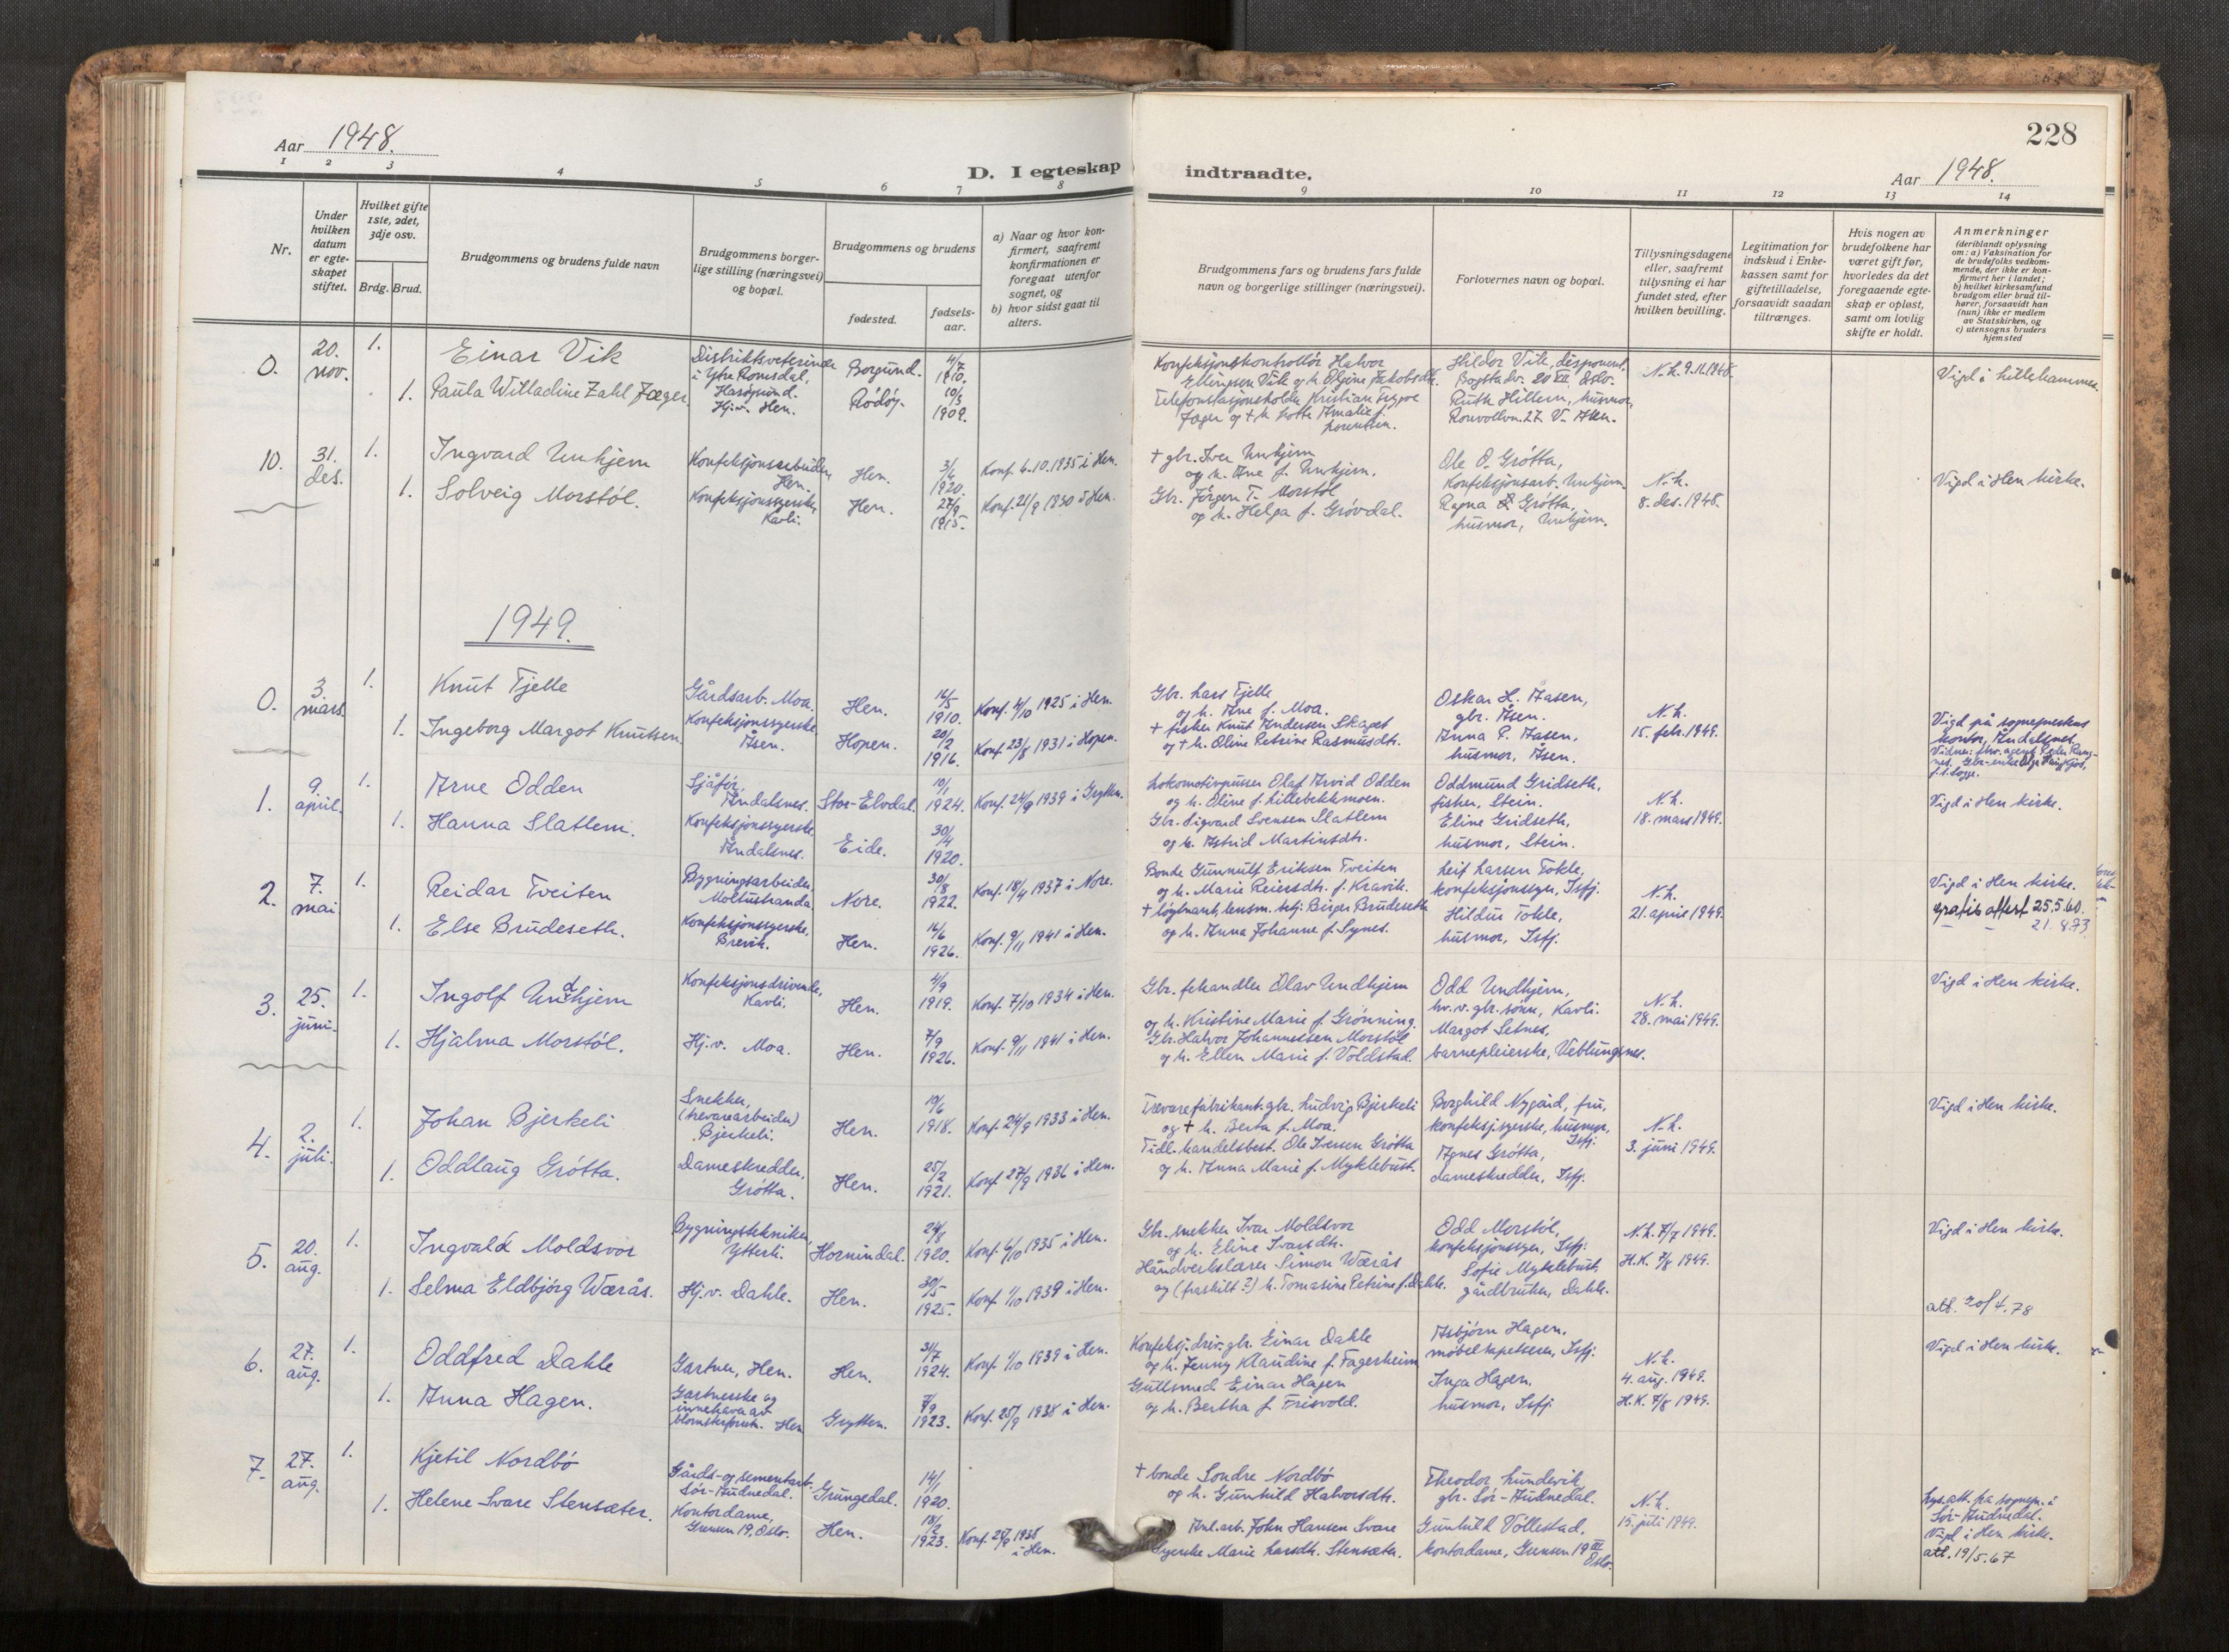 Aar 1948.
D. I egteskap indtraadte.
228
Aar 1948.
1 2 3 4 5 6 7 8 9 10 11 12 13 14
Nr.
Under hvilken datum er egte-skapet stiftet.
Hvilket gifte 1ste, 2det, 3dje osv.
Brdg. Brud.
Brudgommens og brudens fulde navn
Brudgommens borger-lige stilling (næringsvei) og bopæl.
Brudgommens og brudens
fødested.
fødsels-aar.
a) Naar og hvor kon-firmert, saafremt konfirmationen er foregaat utenfor sognet, og
b) hvor sidst gaat til alters.
Brudgommens fars og brudens fars fulde navn og borgerlige stillinger (næringsvei).
Forlovernes navn og bopæl.
Tillysningsdagene eller, saafremt tillysning ei har fundet sted, efter hvilken bevilling.
Legitimation for indskud i Enke-kassen samt for giftetilladelse, forsaavidt saadan tiltrænges.
Hvis nogen av brudefolkene har været gift før, hvorledes da det foregaaende egte-skap er opløst, samt om lovlig skifte er holdt.
Anmerkninger
(deriblandt oplysning om: a) Vaksination for de brudefolks vedkom-mende, der ikke er kon-firmert her i landet; b) hvilket kirkesamfund brudgom eller brud til-hører, forsaavidt han (hun) ikke er medlem av Statskirken, og c) utensogns bruders hjemsted
0. 20. nov. 1. Einar Vik
Distriktsveterinær i Ytre Romsdal,
Borgund. 4/7 1910.
Konfeksjonskontrollør Halvor Ellingsen Vik og h. Oljine Jakobsdtr.
Hildor Vik, disponent. Bogstadv. 20 VII Oslo.
N.h. 9.11.1948.
Vigd i Lillehammer.
1. Paula Willadine Zahl Jæger
Hj.v. Hen.
Rødøy. 10/3 1909.
Telefonstasjonsholder Kristian Trygve Jæger og + h. Lotte Amalie f. Lorentsen.
Ruth Hillem, husmor,
10. 31. des. 1. Ingvard Unhjem
Konfeksjonsarbeider, Hen.
Hen. 3/4 1920.
Konf. 6.10.1935 i Hen.
+ gbr. Iver Unhjem og h. Ane f. Unhjem.
Ole O. Grøtta, Konfeksjonsarb. Unhjem.
N.h. 8. des. 1948.
Vigd i Hen kirke.
1. Solveig Morstøl.
Konfeksjonssyerske, Kavli.
Hen. 27/9 1915.
Konf. 21/9 1930 i Hen.
Gbr. Jørgen T. Morstøl og h. Helga f. Grøvdal.
Ragna Grøtta, husmor, Unhjem.
1949.
0. 3. mars. 1. Knut Tjelle
Gårdsarb. Moa.
Hen. 16/5 1910.
Konf. 4/10 1925 i Hen.
Gbr. Lars Tjelle og h. Ane f. Moa.
Oskar L. Aasen, gbr. Åsen.
N.h. 15. febr. 1949.
Vigd på sogneprestens kontor, Åndalsnes.
1. Ingeborg Margot Knutsen
Konfeksjonssyerske Åsen.
Hopen. 20/2 1916.
Konf. 23/8 1931 i Hopen.
+ fisker Knut Andersen Skaget og + h. Oline Petrine Rasmusdtr.
Anna P. Aasen, husmor, Åsen.
1. 9. april. 1. Arne Odden
Sjåfør, Åndalsnes.
Stor-Elvdal. 10/1 1924.
Konf. 24/9 1939 i Grytten.
Lokomotivpusser Olaf Arvid Odden og h. Oline f. Lillebekkmoen.
Oddmund Gridseth, fisker, Stein.
N.h. 18. mars 1949.
Vigd i Hen kirke.
1. Hanna Slatlem.
Konfeksjonssyerske Åndalsnes.
Eide. 30/4 1920.
Gbr. Sigvard Svensen Slatlem og h. Astrid Martinsdtr.
Eline Gridseth, husmor, Stein.
2. 7. mai 1. Reidar Tveiten
Bygningsarbeider, Moltustranda.
Nore. 30/8 1922.
Konf. 18/4 1937 i Nore.
Bonde Gunnulf Eriksen Tveiten og h. Marie Reiersdtr. f. Kravik.
Leif Larsen Tokle, konfeksjonssyer, Isfj.
N.h. 21. april 1949.
Vigd i Hen kirke.
gratis attest 25.5.60.
— — 21.8.73.
1. Else Brudeseth.
Konfeksjonssyerske, Brevik.
Hen. 16/6 1926.
Konf. 9/11 1941 i Hen.
Birger Brudeseth og h. Anna Johanne f. Synes.
Hildur Tokle, husmor, Isfj.
3. 25. juni. 1. Ingolf Undhjem
Konfeksjonsdrivende, Kavli.
Hen. 4/9 1919.
Konf. 7/10 1934 i Hen.
Gbr. fehandler Olav Undhjem og h. Kristine Marie f. Grønning.
Odd Undhjem, hv.v. gbr. sønn, Kavli.
N.h. 28. mai 1949.
Vigd i Hen kirke.
1. Hjalma Morstøl.
Hj.v. Moa.
Hen. 7/9 1926.
Konf. 9/11 1941 i Hen.
Gbr. Halvor Johannessen Morstøl og h. Ellen Marie f. Voldstad.
Margot Setnes, barnepleierske, Veblungsnes.
4. 2. juli. 1. Johan Bjerkeli
Snekker, (trevarearbeider) Bjerkeli.
Hen. 19/6 1918.
Konf. 24/9 1933 i Hen.
Trevarefabrikant. gbr. Ludvig Bjerkeli og + h. Berta f. Moa.
Borghild Nygård, fru, konfeksj.syerske, husmor, Isfj.
N.h. 3. juni 1949.
Vigd i Hen kirke.
1. Oddlaug Grøtta.
Dameskredder, Grøtta.
Hen. 25/2 1921.
Konf. 27/9 1936 i Hen.
Tidl. handelsbest. Ole Iversen Grøtta og h. Anna Marie f. Myklebust.
Agnes Grøtta, dameskredder, Isfj.
5. 20. aug. 1. Ingvald Moldsvor
Bygningstekniker, Ytterli.
Hornindal. 24/8 1920.
Konf. 6/10 1935 i Hen.
Gbr. snekker Ivar Moldsvor og h. Eline Ivarsdtr.
Odd Morstøl, konfeksjonssyer, Isfj.
N.h. 7/7 1949.
H.K. 7/8 1949.
Vigd i Hen kirke.
1. Selma Eldbjørg Wærås.
Hj.v. Dahle.
Hen. 30/5 1925.
Konf. 1/10 1939 i Hen.
Håndverkslærer Simon Wærås og (fraskilt?) h. Tomasine Petrine f. Dahle.
Sofie Myklebust, gårdbruker, Dahle.
att. 20/4.78
6. 27. aug. 1. Oddfred Dahle
Gartner, Hen.
Hen. 31/7 1924.
Konf. 1/10 1939 i Hen.
Konfeksj.driv. gbr. Einar Dahle og h. Jenny Klaudine f. Fagerheim
Asbjørn Hagen, møbeltapetserer, Isfj.
N.h. 4. aug. 1949.
H.K. 7/8 1949.
Vigd i Hen kirke.
1. Anna Hagen.
Gartnerske og innehaver av blomsterforr. Hen
Grytten. 7/9 1923.
Konf. 25/9 1938 i Hen.
Gullsmed Einar Hagen og h. Bertha f. Frisvold.
Inga Hagen, husmor, Isfj.
7. 27. aug. 1. Kjetil Nordbø
Gårds- og sementarb. Sør-Audnedal.
Grungedal. 14/1 1920.
+ bonde Sondre Nordbø og h. Gunhild Halvorsdtr.
Theodor Lundevik, gbr. Sør-Audnedal.
N.h. 15. juli 1949.
Lys.att. fra sognepr. i Sør-Audnedal.
Vigd i Hen kirke.
att. 19/5.67
1. Helene Svare Stensæter.
Kontordame, Grensen 19, Oslo.
Hen. 18/2 1923.
Konf. 25/9 1938 i Hen.
Anl.arb. John Hansen Svare
Syerske Marie Larsdtr. Stensæter.
Gunhild Vollestad, kontordame, Grensen 19 III Oslo.